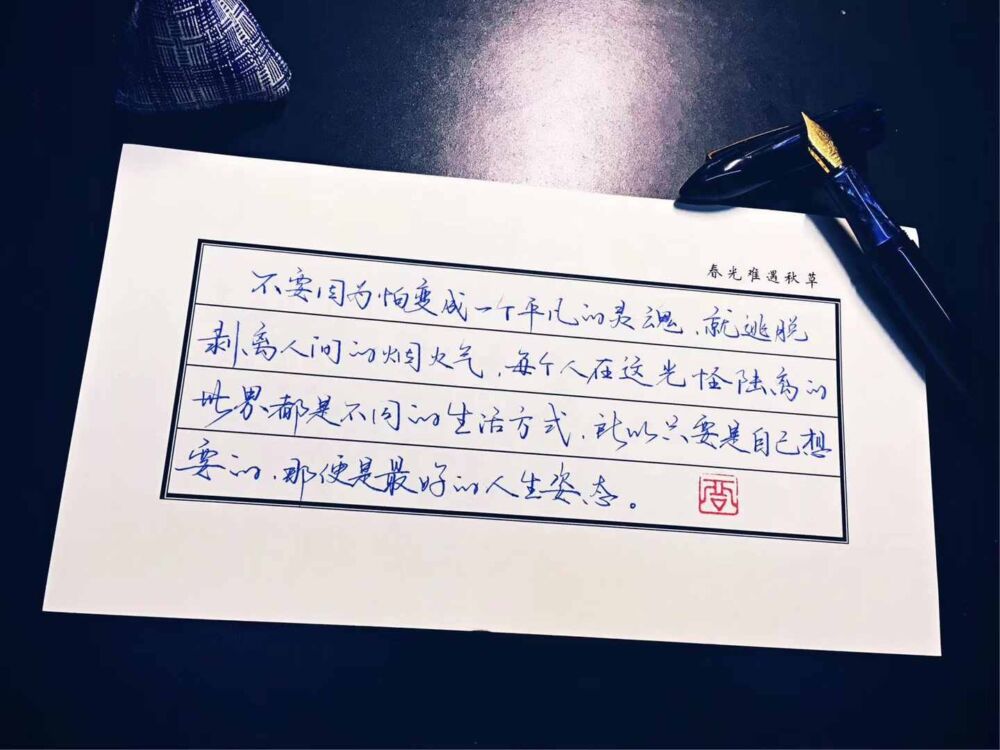 春光难遇秋草
不要因为怕变成一个平凡的灵魂，就逃脱
剥离人间的烟火气，每个人在这光怪陆离的
世界都是不同的生活方式，所以只要是自己想
要的，那便是最好的人生姿态。